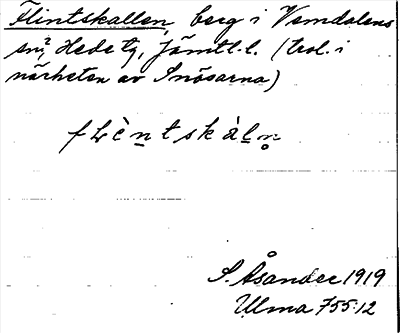 Flintskallen, berg i Vemdalens
sn, Hede tg, Jämtl. l. (trol. i
närheten av Snösarna)
fLèntskàln
S. Åsander 1919
Ulma 755:12